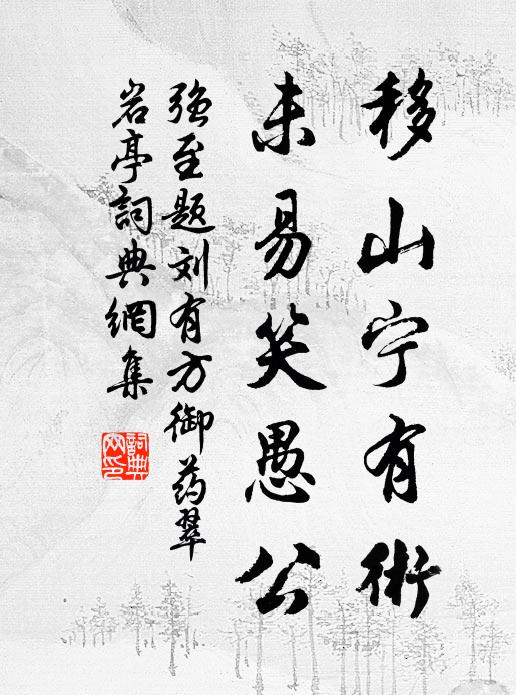 移山宁有術
未易笑愚公
强至题刘有方御药翠
岩亭詞典網集
詞典
网印